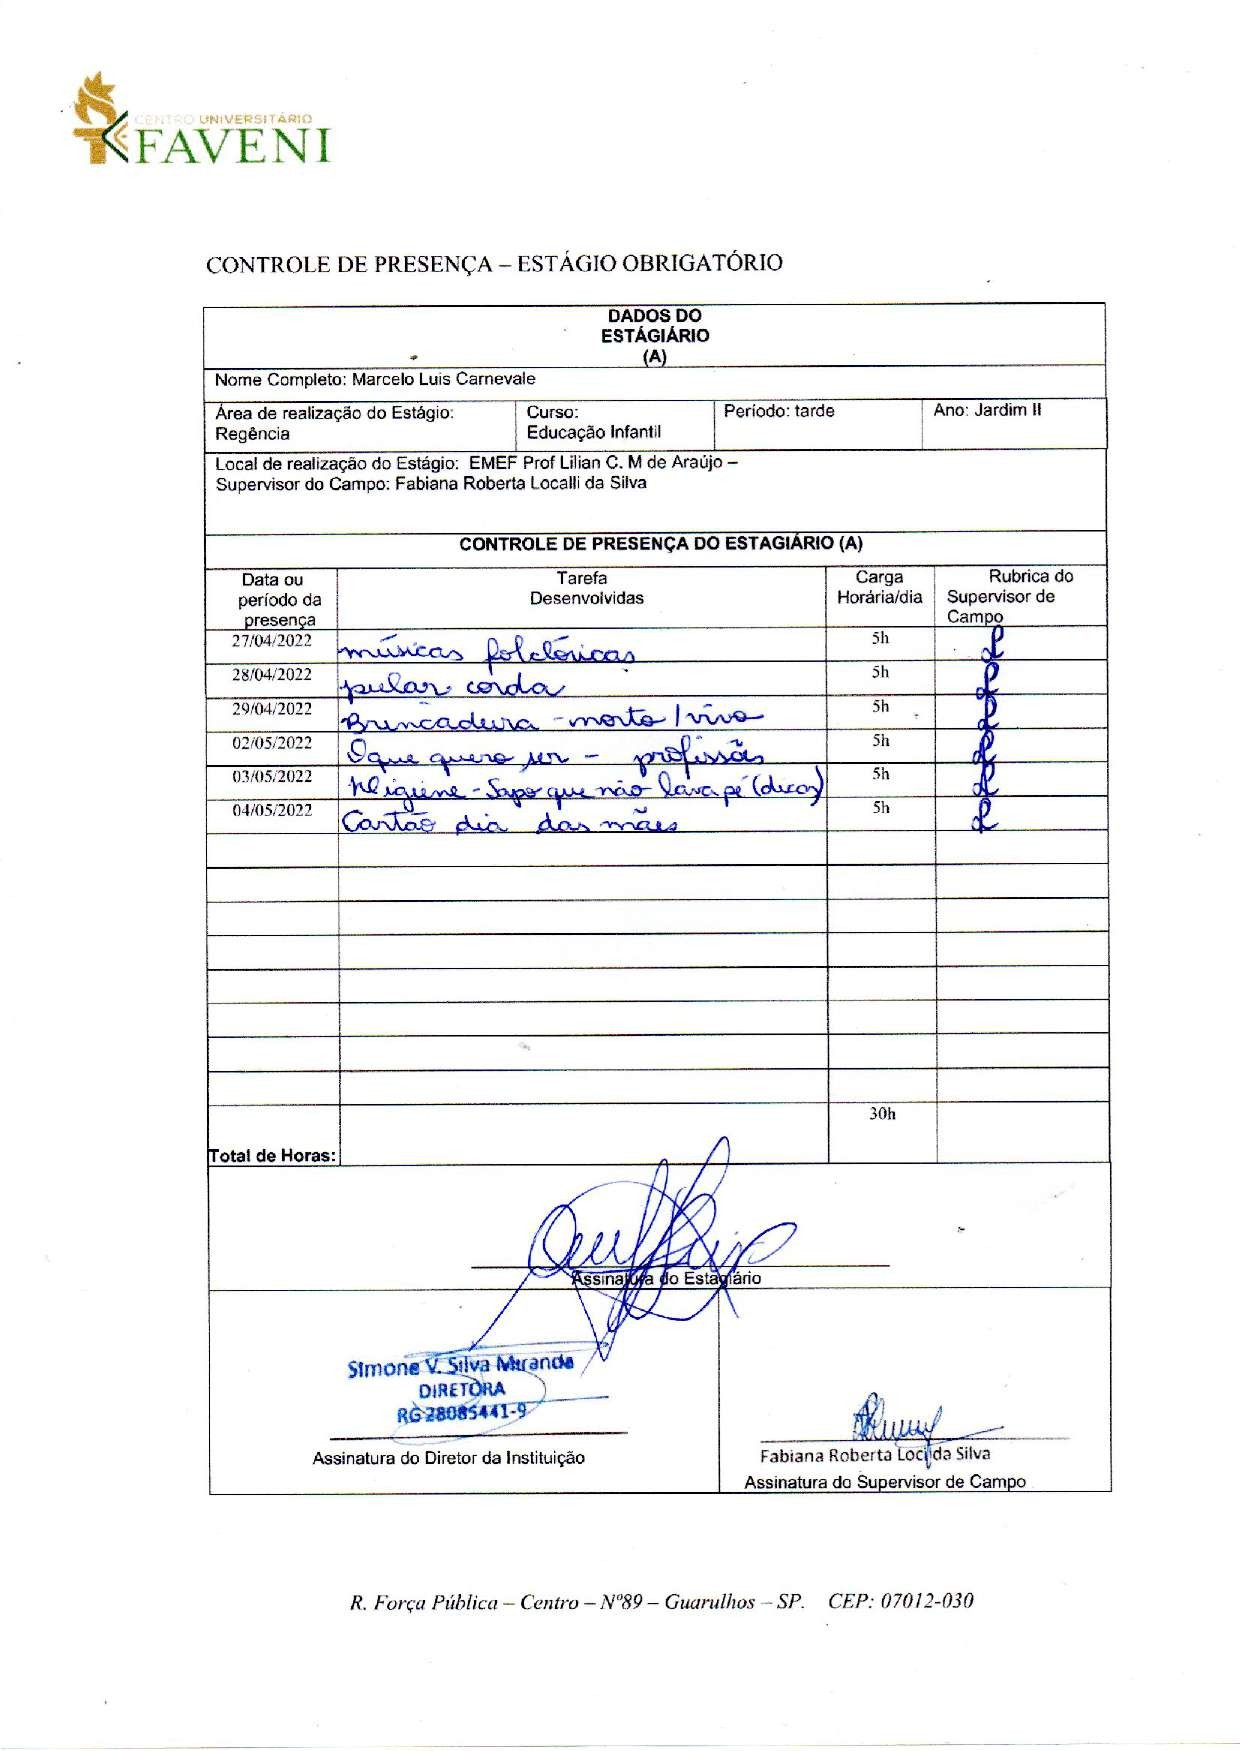 CENTRO UNIVERSITÁRIO
FAVENI
CONTROLE DE PRESENÇA – ESTÁGIO OBRIGATÓRIO
DADOS DO
ESTÁGIÁRIO
(A)
Nome Completo: Marcelo Luis Carnevale
Área de realização do Estágio: Curso: Período: tarde Ano: Jardim II
Regência Educação Infantil
Local de realização do Estágio: EMEF Prof Lilian C. M de Araújo –
Supervisor do Campo: Fabiana Roberta Localli da Silva
CONTROLE DE PRESENÇA DO ESTAGIÁRIO (A)
Data ou Tarefa Carga Rubrica do
período da Desenvolvidas Horária/dia Supervisor de
presença Campo
27/04/2022 músicas folclóricas 5h
28/04/2022 pular corda 5h
29/04/2022 Brincadeira - morto / vivo 5h
02/05/2022 O que quero ser - 5h
03/05/2022 Higiene - Sapo que não lava pé 5h
04/05/2022 Cartão dia das mães 5h
30h
Total de Horas:
Assinatura do Estagiário
Simone V. Silva Miranda
DIRETORA
RG 28085441-9
Assinatura do Diretor da Instituição
Fabiana Roberta da Silva
Assinatura do Supervisor de Campo
R. Força Pública – Centro – Nº89 – Guarulhos – SP. CEP: 07012-030